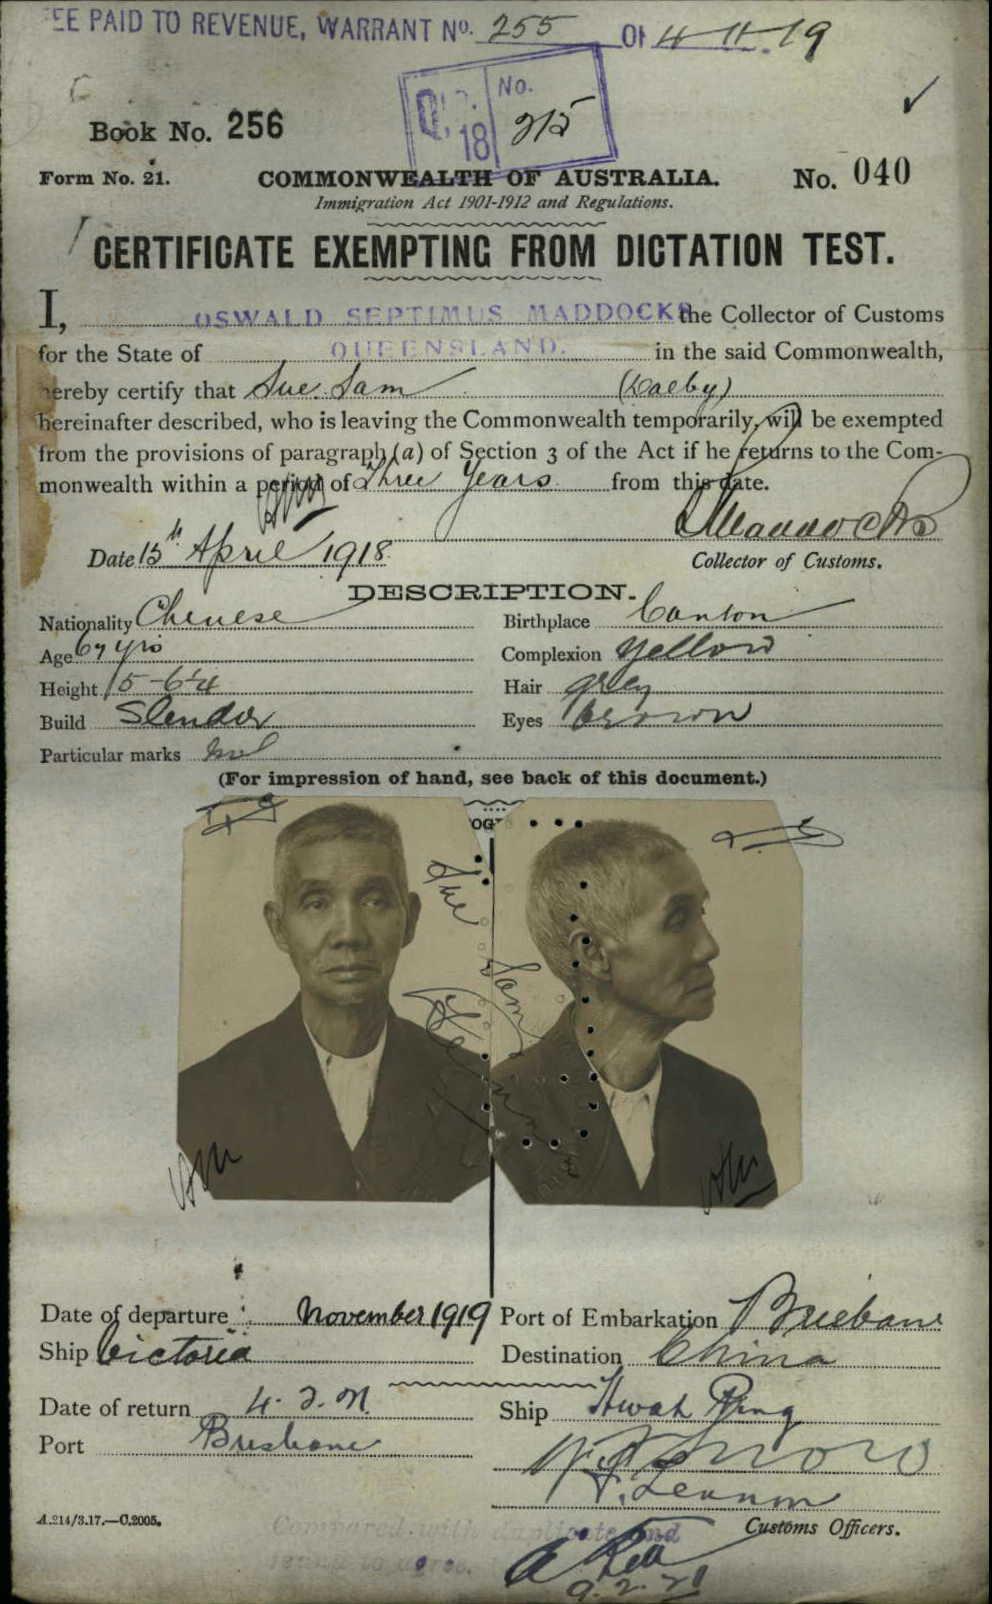 EE PAID TO REVENUE, WARRANT No. 255 OF 4-11-19
QLD. 18 No. 215
Book No. 256
Form No. 21. COMMONWEALTH OF AUSTRALIA. No. 040
Immigration Act 1901-1912 and Regulations.
CERTIFICATE EXEMPTING FROM DICTATION TEST.
I, OSWALD SEPTIMUS MADDOCKS the Collector of Customs
for the State of QUEENSLAND. in the said Commonwealth,
hereby certify that Sue Sam (Dalby)
hereinafter described, who is leaving the Commonwealth temporarily, will be exempted
from the provisions of paragraph (a) of Section 3 of the Act if he returns to the Com-
monwealth within a period of Three Years from this date.
Date 15th April 1918 Collector of Customs.
DESCRIPTION.
Nationality Chinese Birthplace Canton
Age 67 yrs Complexion Yellow
Height 5-6¼ Hair grey
Build Slender Eyes brown
Particular marks nil
(For impression of hand, see back of this document.)
Sue Sam
Date of departure: November 1919 Port of Embarkation Brisbane
Ship Victoria Destination China
Date of return 4.2.21 Ship Hwah Ping
Port Brisbane
F. Lennon
A.214/3.17.—C.2005. Customs Officers.
Compared with duplicate and
found to agree.
9.2.21